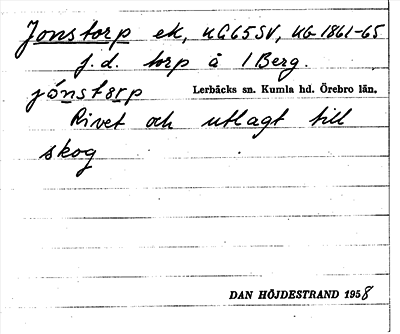 Jonstorp ek, UG65SV, UG 1861-65
f.d. torp å 1 Berg.
jónstorp Lerbäcks sn. Kumla hd. Örebro län.
Rivet och utlagt till
skog
DAN HÖJDESTRAND 1958